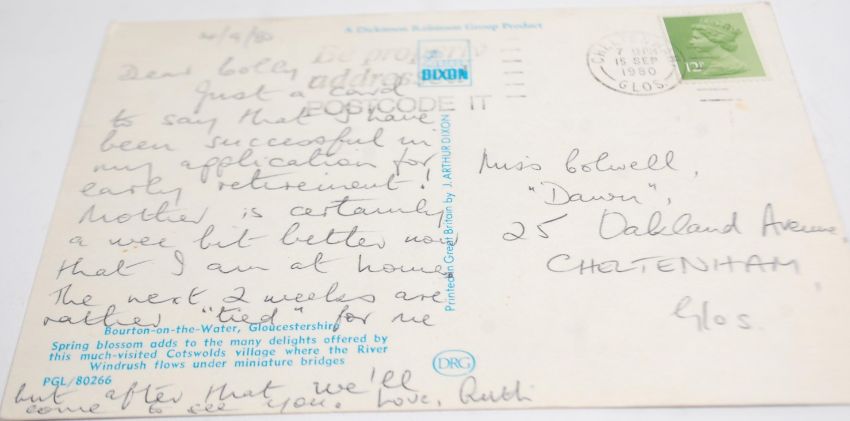 A Dickinson Robinson Group Product
Dear Colly
Just a card
to say that I have
been successful in
my application for
early retirement!
Mother is certainly
a wee bit better now
that I am at home.
The next 2 weeks are
rather "tied" for me
but after that we'll
come to see you. Love, Ruth
Be properly
addressed
POSTCODE IT
DIXON
Printed in Great Britain by J. ARTHUR DIXON
Bourton-on-the-Water, Gloucestershire
Spring blossom adds to the many delights offered by
this much-visited Cotswolds village where the River
Windrush flows under miniature bridges
PGL/80266
DRG
CHELTENHAM
15 SEP
1980
GLOS.
12P
Miss Colwell,
"Dawn",
25 Oakland Avenue,
CHELTENHAM,
Glos.